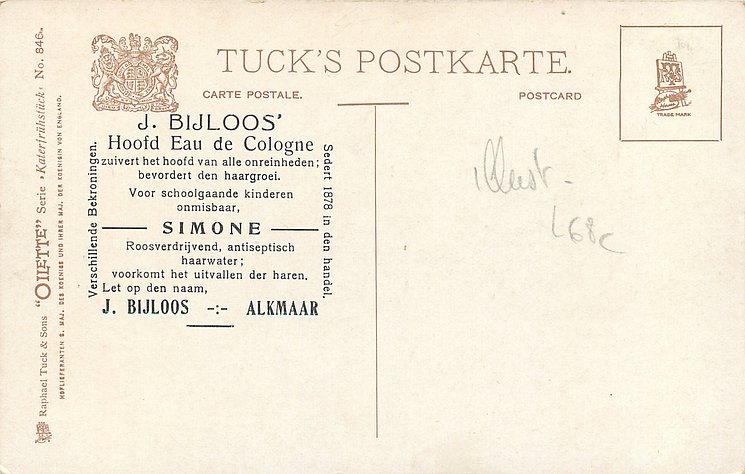 TUCK'S POSTKARTE.
CARTE POSTALE.
POSTCARD
TRADE MARK
J. BIJLOOS'
Hoofd Eau de Cologne
zuivert het hoofd van alle onreinheden;
bevordert den haargroei.
Voor schoolgaande kinderen
onmisbaar,
SIMONE
Roosverdrijvend, antiseptisch
haarwater;
voorkomt het uitvallen der haren.
Let op den naam,
J. BIJLOOS -:- ALKMAAR
Verschillende Bekroningen.
Sedert 1878 in den handel.
Raphael Tuck & Sons "OILETTE" Serie „Katerfrühstück“ No. 846.
HOFLIEFERANTEN S. MAJ. DES KOENIGS UND IHRER MAJ. DER KOENIGIN VON ENGLAND.